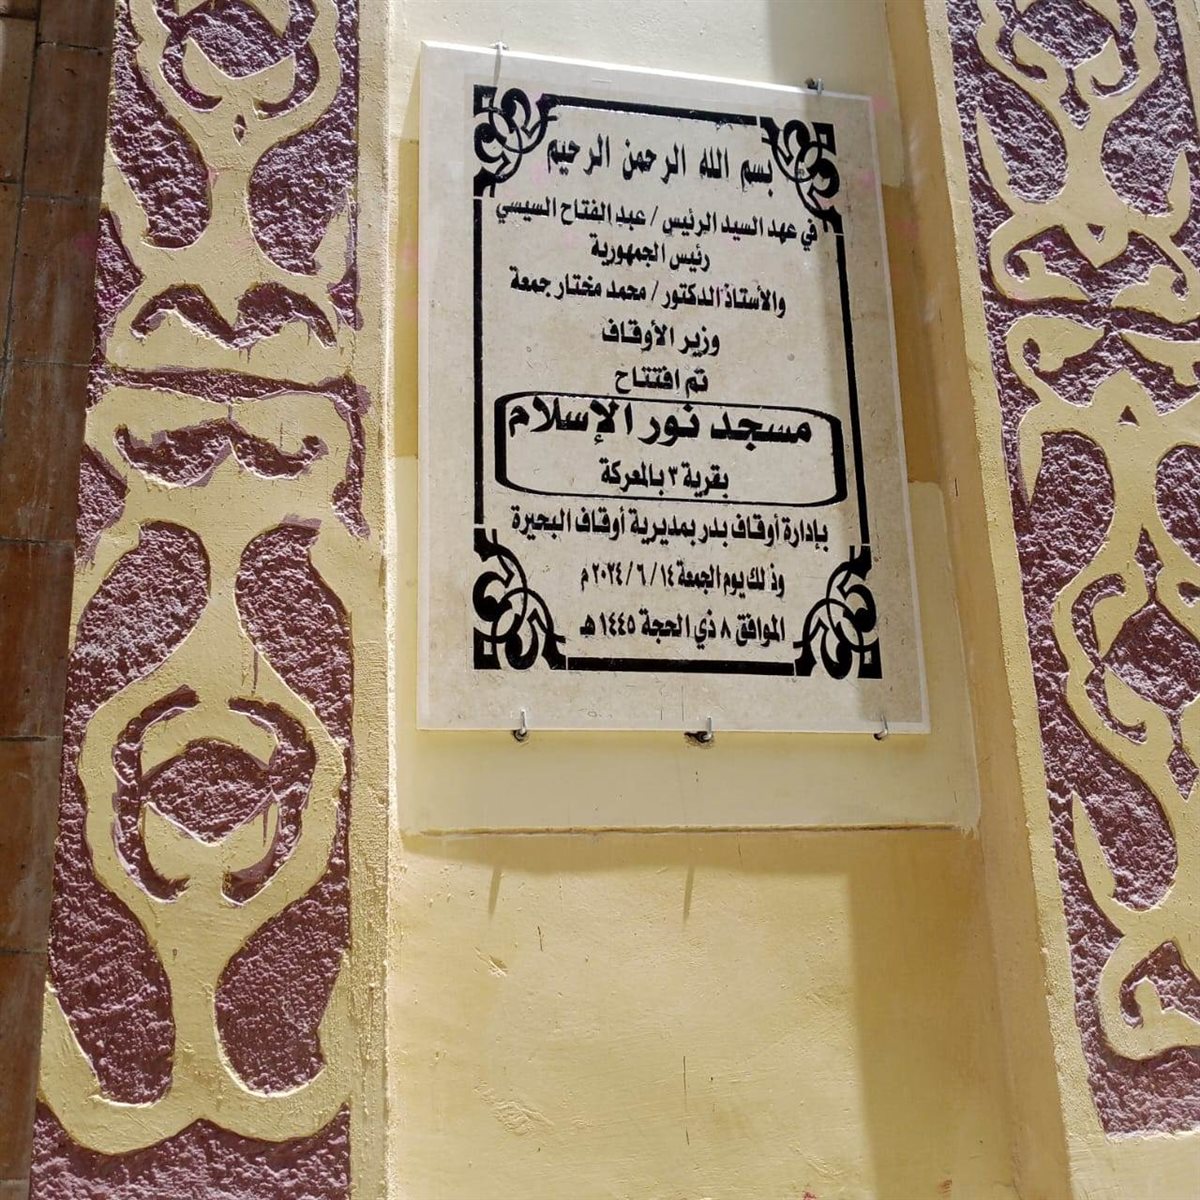 بسم الله الرحمن الرحيم
في عهد السيد الرئيس / عبد الفتاح السيسي
رئيس الجمهورية
والأستاذ الدكتور / محمد مختار جمعة
وزير الأوقاف
تم افتتاح
مسجد نور الإسلام
بقرية ٣ بالمعركة
بإدارة أوقاف بدر بمديرية أوقاف البحيرة
وذلك يوم الجمعة ١٤ / ٦ / ٢٠٢٤ م
الموافق ٨ ذي الحجة ١٤٤٥ هـ